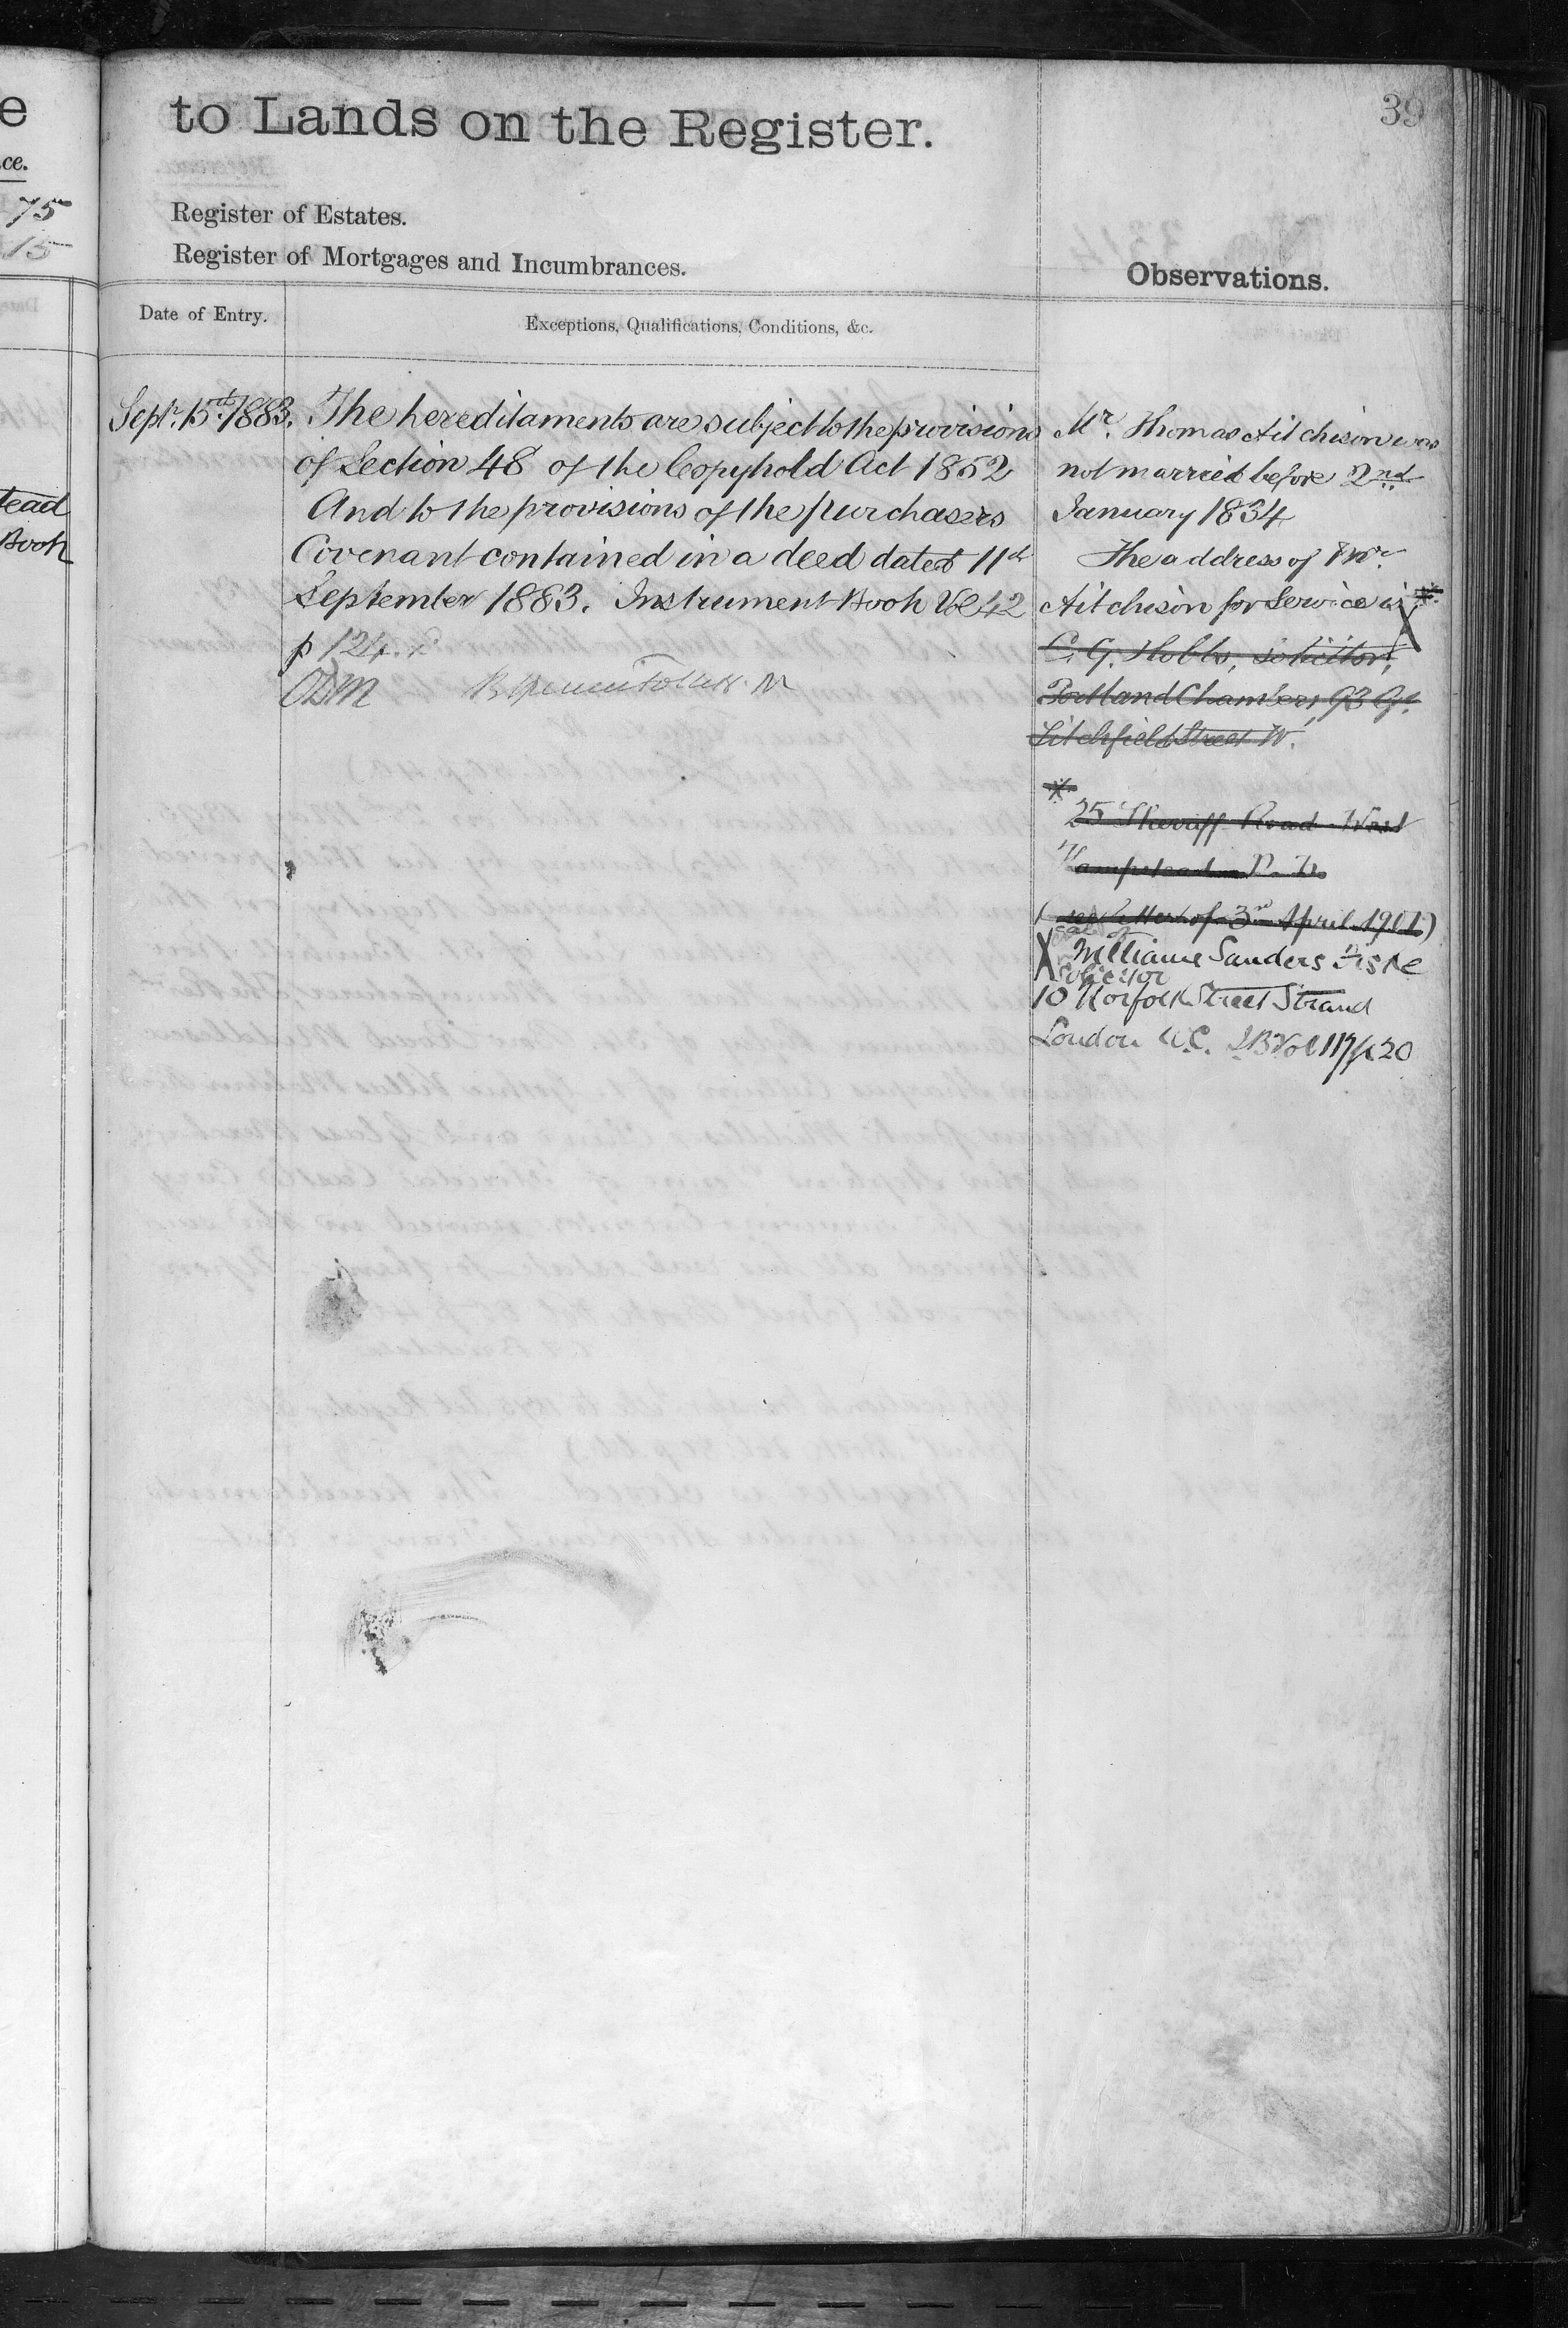 e
to Lands on the Register.
39
ce.
75
15
Register of Estates.
Register of Mortgages and Incumbrances.
Observations.
Date of Entry.
Exceptions, Qualifications, Conditions, &c.
tead
Book
Sept. 15th 1883. The hereditaments are subject to the provisions
of Section 48 of the Copyhold Act 1852
And to the provisions of the purchasers
Covenant contained in a deed dated 11th
September 1883. Instrument Book Vol 42
p 124.
ODM
Mr. Thomas Aitchison was
not married before 2nd
January 1834
The address of Mr.
Aitchison for Service is *
X
C. G. Hobbs, Solicitor,
Portland Chambers 93 Gt.
Titchfield Street W.
*
25 Sherriff Road West
Hampstead N. W.
(see letter of 3rd April 1901)
care of
X William Sanders Fiske
Solicitor
10 Norfolk Street Strand
London W.C. IB Vol 117 p 20